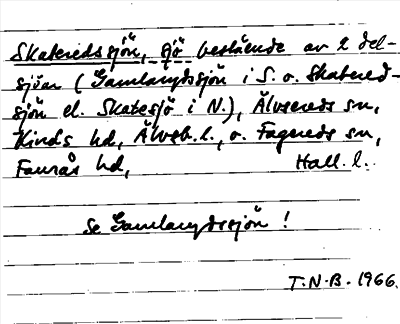 Skateredssjön, sjö bestående av 2 del-
sjöar (Gamlarydssjön i S. o. Skatered-
sjön el. Skatesjö i N.), Älvsereds sn,
Kinds hd, Älvsb. l., o. Fagereds sn,
Faurås hd, Hall. l.
Se Gamlarydssjön!
T.N.B. 1966.